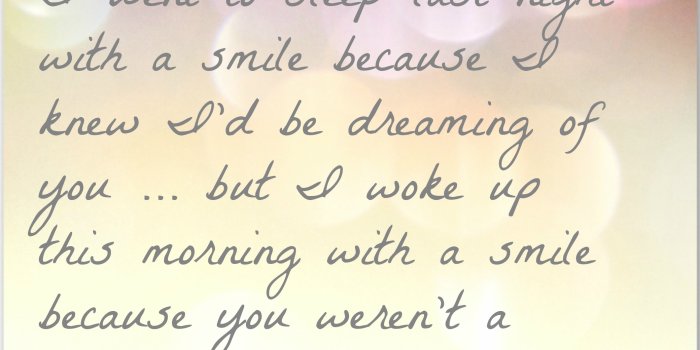 I went to sleep last night
with a smile because I
knew I'd be dreaming of
you ... but I woke up
this morning with a smile
because you weren't a